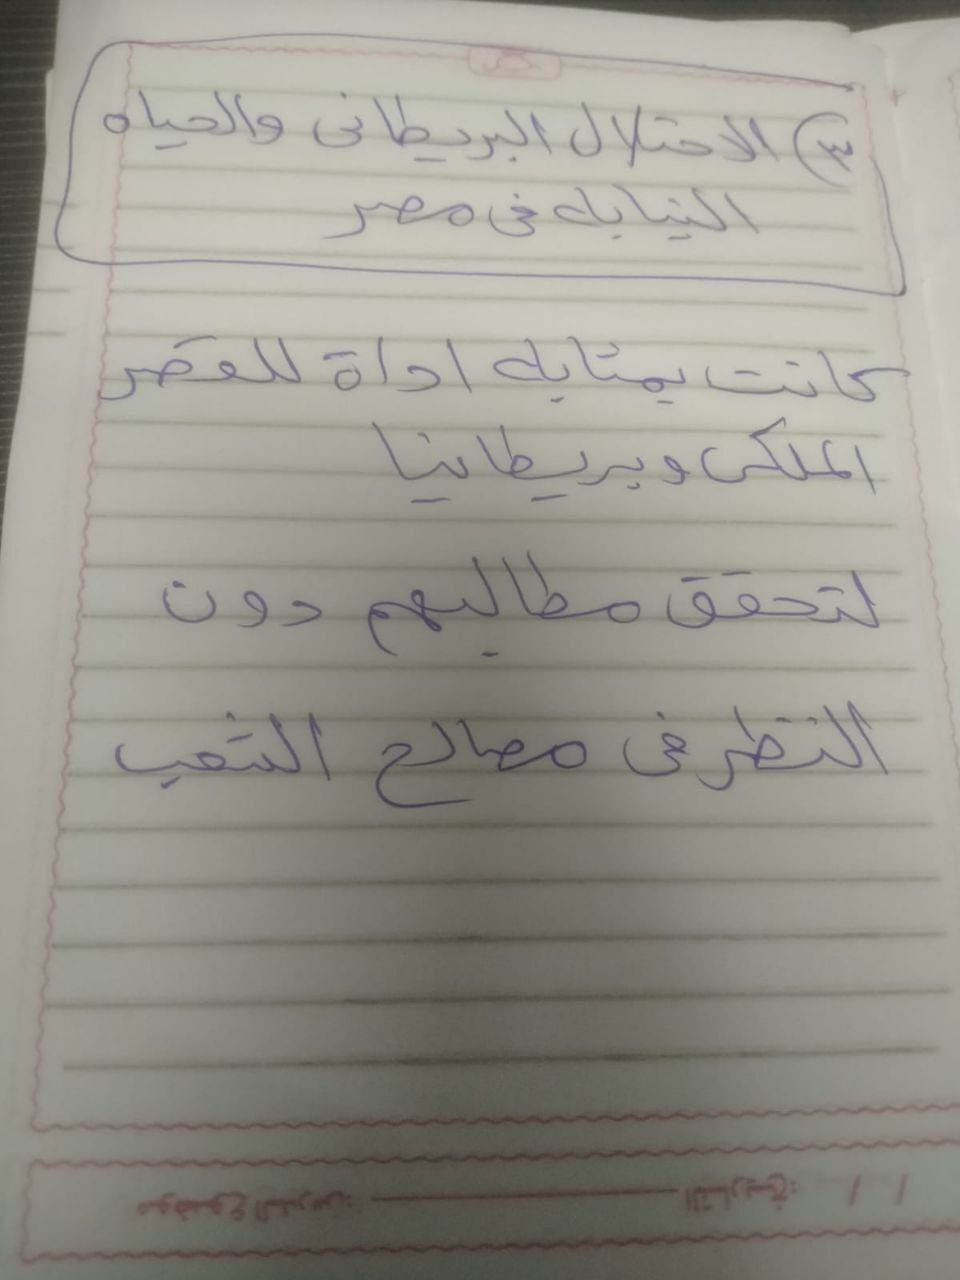 ٣) الاحتلال البريطانى والحياه
النيابه فى مصر
كانت بمثابه اداة للقصر
الملكى وبريطانيا
لتحقق مطالبهم دون
النظر فى مصالح الشعب
موضوع الدرس: التاريخ: / /